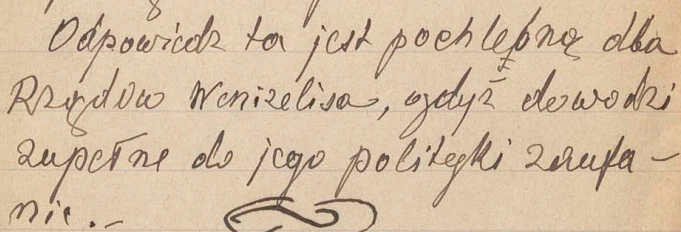 Odpowiedz ta jest pochlebną dla
Rządów Wenizelisa, gdyż dowodzi
zupełne do jego polityki zaufa-
nie.-